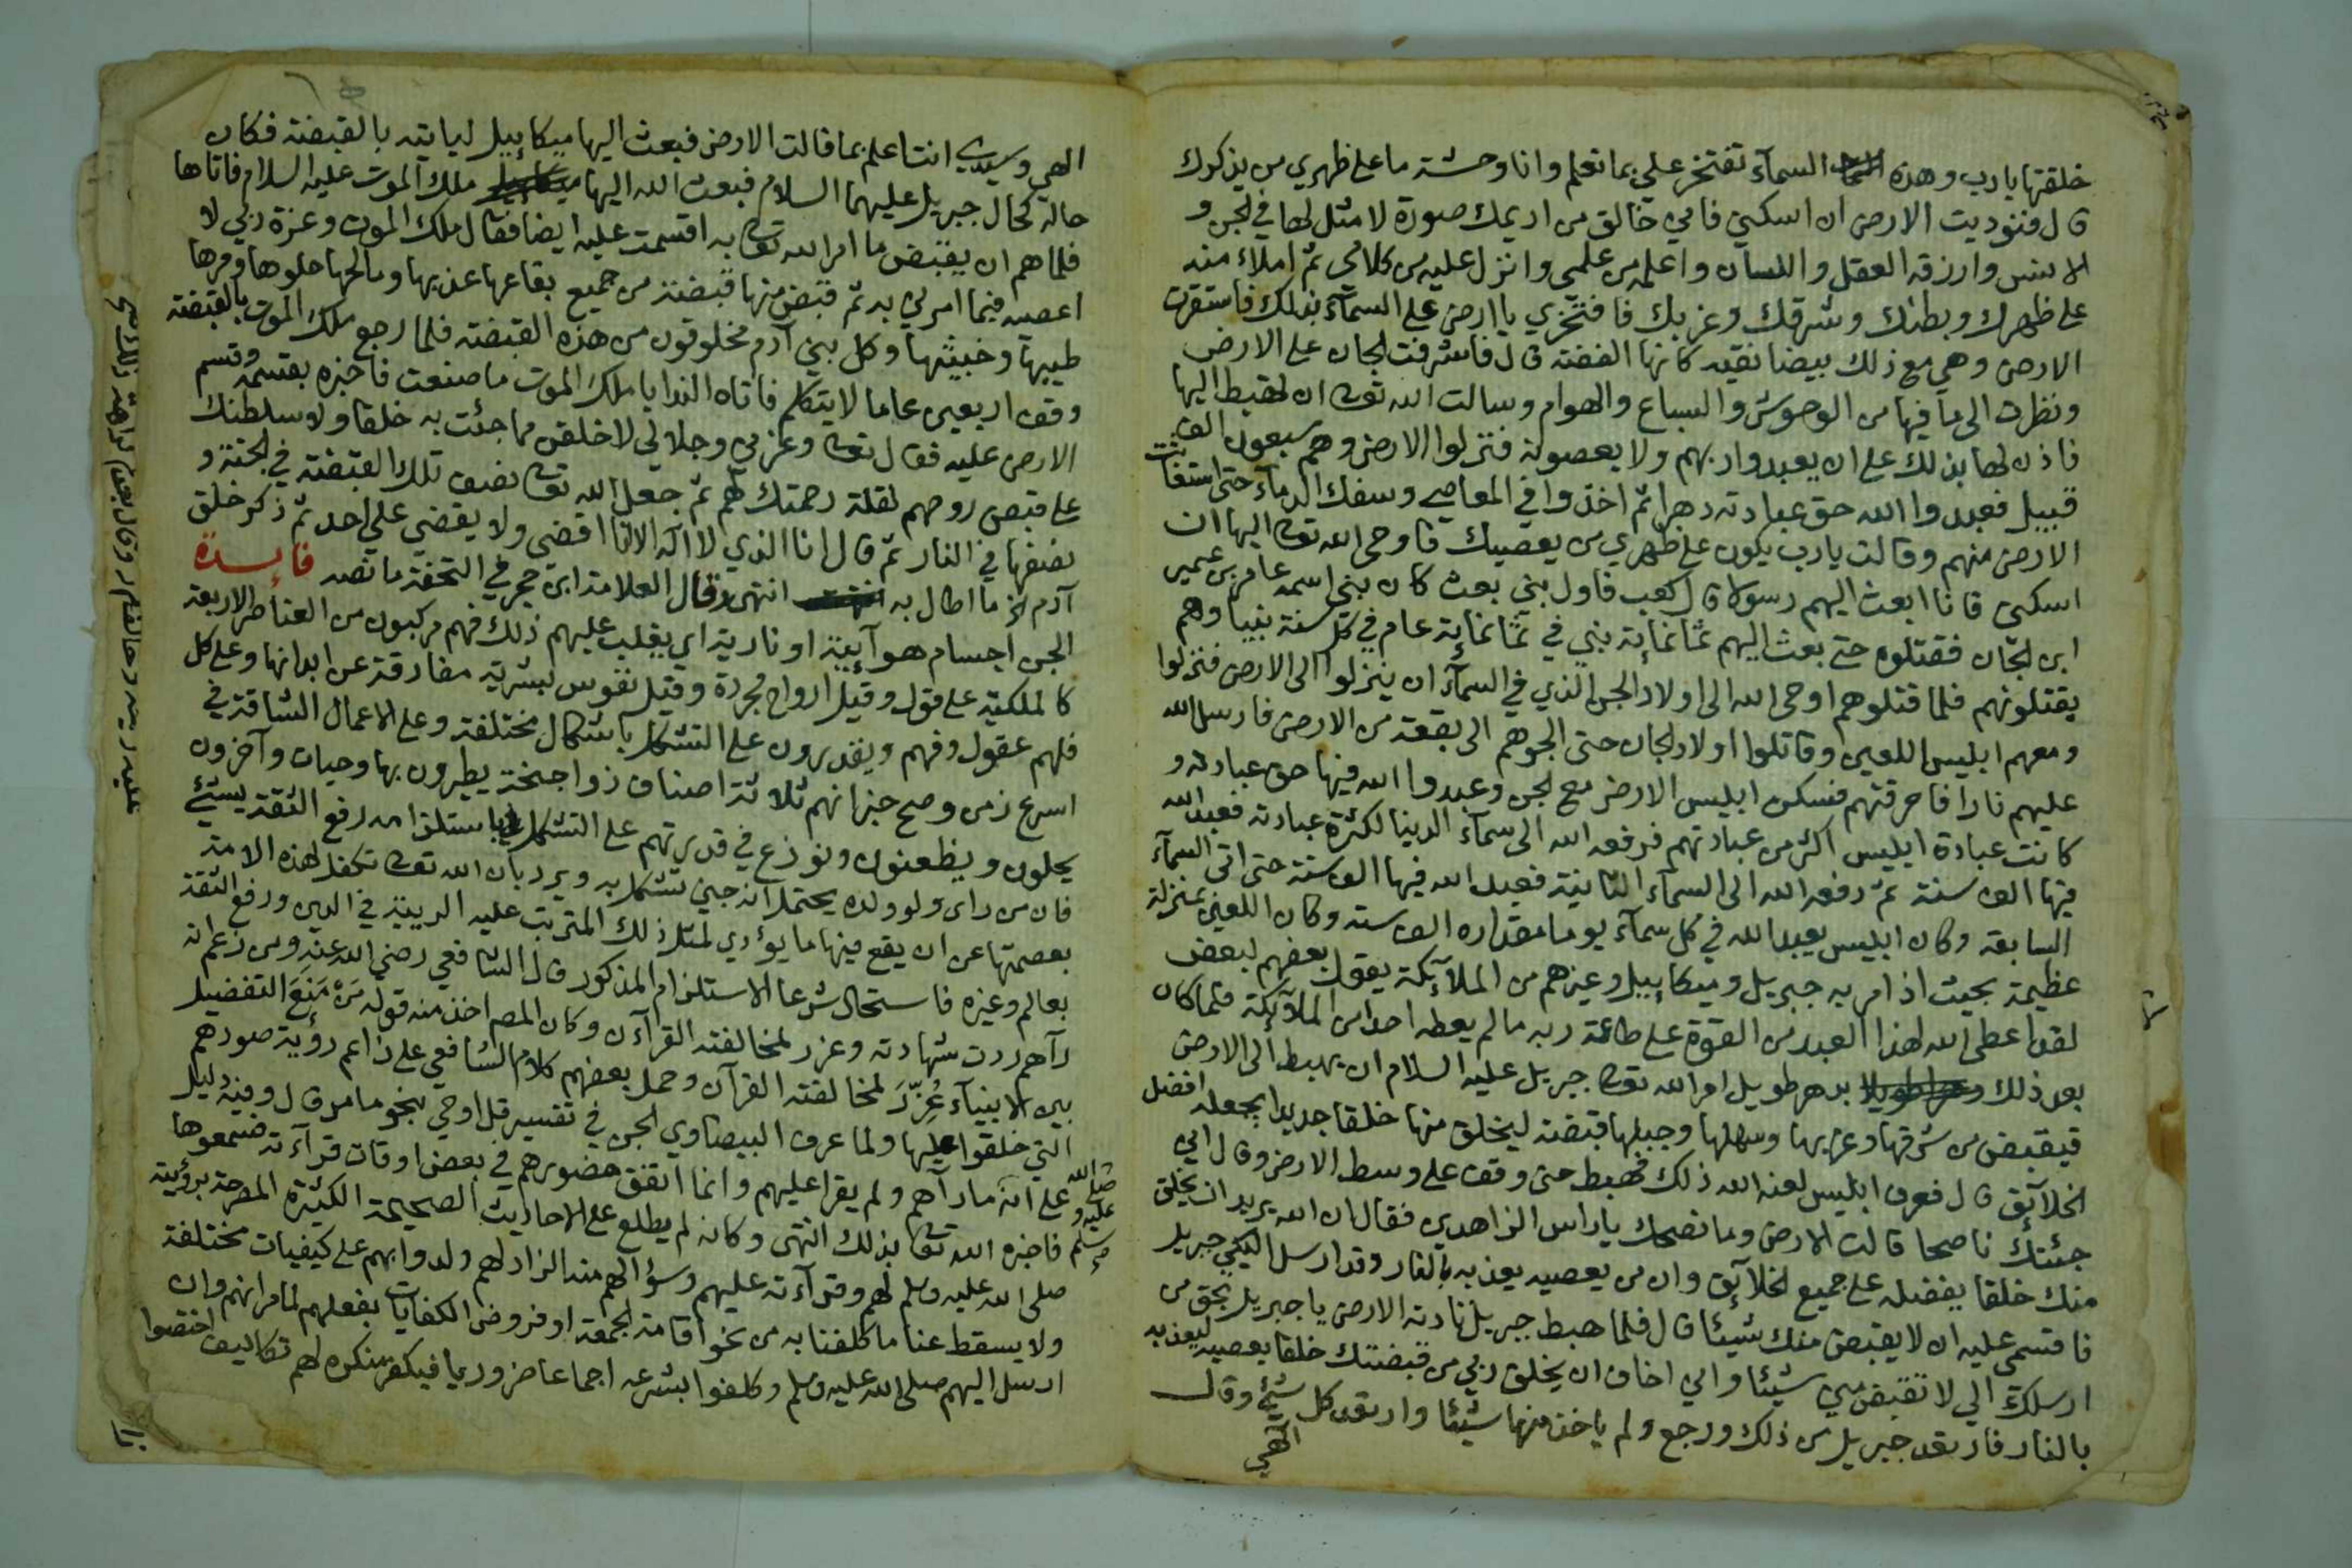 خلقتها يا رب وهذه السمآء تفتخر علي بما تعلم وانا وحشة ما على ظهري من يذكرك
قال فنوديت الارض ان اسكني فاني خالق من اديمك صورة لا مثل لها في الجن و
الانس وارزقه العقل واللسان واعلمه من علمي وانزل عليه من كلامي ثم املاء منه
على ظهرك وبطنك وشرقك وغربك فافتخري يا ارض على السمآء بذلك فاستقرت
الارض وهي مع ذلك بيضا نقيه كانها الفضة قال فاشرفت الجان على الارض
ونظرت الى ما فيها من الوحوش والسباع والهوام وسالت الله تعالى ان تهبط اليها
فاذن لها بذلك على ان يعبدوا ربهم ولا يعصونه فنزلوا الارض وهم سبعون الف
قبيل فعبدوا الله حق عبادته دهرا ثم اخذوا في المعاصي وسفك الدمآء حتى استغاثت
الارض منهم وقالت يا رب يكون على ظهري من يعصيك فاوحى الله تعالى اليها ان
اسكني فانا ابعث اليهم رسولا قال كعب فاول نبي بعث كان نبي اسمه عامر بن عمير
ابن الجان فقتلوه حتى بعث اليهم ثمانماية نبي في ثمانماية عام في كل سنة نبيا وهم
يقتلونهم فلما قتلوهم اوحى الله الى اولاد الجن الذي في السمآء ان ينزلوا الى الارض فنزلوا
ومعهم ابليس اللعين وقاتلوا اولاد الجان حتى الجوهم الى بقعة من الارض فارسل الله
عليهم نارا فاحرقتهم فسكن ابليس الارض مع الجن وعبدوا الله فيها حق عبادته و
كانت عبادة ابليس اكثر من عبادتهم فرفعه الله الى سمآء الدنيا لكثرة عبادته فعبد الله
فيها الف سنة ثم رفعه الله الى السمآء الثانية فعبد الله فيها الف سنة حتى اتى السمآء
السابعة وكان ابليس يعبد الله في كل سمآء يوما مقداره الف سنة وكان اللعين بمنزلة
عظيمة بحيث اذا مر به جبريل وميكاييل وغيرهم من الملآيكة يقول بعضهم لبعض
لقد اعطى الله لهذا العبد من القوة على طاعة ربه ما لم يعطه احدا من الملآيكة فلما كان
بعد ذلك بدهر طويل امر الله تعالى جبريل عليه السلام ان يهبط الى الارض
فيقبض من شرقها وغربها وسهلها وجبلها قبضة ليخلق منها خلقا جديدا يجعله افضل
الخلآئق قال فعرف ابليس لعنه الله ذلك فهبط حتى وقف على وسط الارض وقال اني
جئتك ناصحا قالت الارض وما نصحك يا راس الزاهدين فقال ان الله يريد ان يخلق
منك خلقا يفضله على جميع الخلآئق وان من يعصيه يعذبه بالنار وقد ارسل اليكي جبريل
فاقسمي عليه ان لا يقبض منك شيئا قال فلما هبط جبريل نادته الارض يا جبريل بحق من
ارسلك الي لا تقبض مني شيئا واني اخاف ان يخلق ربي من قبضتك خلقا يعصيه ليعذبه
بالنار فارتعد جبريل من ذلك ورجع ولم ياخذ منها شيئا وارتعد كل شيء وقال
الهي
الهي وسيدي انت اعلم بما قالت الارض فبعث اليها ميكاييل لياتيه بالقبضة فكان
حاله كحال جبريل عليهما السلام فبعث الله اليها ملك الموت عليه السلام فاتاها
فلما هم ان يقبض ما امر الله تعالى به اقسمت عليه ايضا فقال ملك الموت وعزة ربي لا
اعصيه فيما امرني به ثم قبض منها قبضة من جميع بقاعها عذبها ومالحها حلوها ومرها
طيبها وخبيثها وكل بني آدم مخلوقون من هذه القبضة فلما رجع ملك الموت بالقبضة
وقف اربعين عاما لا يتكلم فاتاه الندا يا ملك الموت ما صنعت فاخبره بقسمه وقسم
الارض عليه فقال تعالى وعزتي وجلالي لاخلقن مما جئت به خلقا ولاسلطنك
على قبض روحهم لقلة رحمتك لهم ثم جعل الله تعالى نصف تلك القبضة في الجنة و
نصفها في النار ثم قال انا الذي لا اله الا انا اقضي ولا يقضي علي احد ثم ذكر خلق
آدم الخ ما اطال به انتهى وقال العلامة ابن حجر في التحفة ما نصه فايدة
الجن اجسام هوآئية او نارية اي يغلب عليهم ذلك فهم مركبون من العناصر الاربعة
كالملكية على قول وقيل ارواح مجردة وقيل نفوس بشرية مفارقة عن ابدانها وعلى كل
فلهم عقول وفهم ويقدرون على التشكل باشكال مختلفة وعلى الاعمال الشاقة في
اسرع زمن وصح خبر انهم ثلاثة اصناف ذوا جنحة يطيرون بها وحيات وآخرون
يحلون ويظعنون ونوزع في قدرتهم على التشكل باستلزامه رفع الثقة بشيئ
فان من راى ولو ولده يحتمل انه جني تشكل به ويرد بان الله تعالى تكفل لهذه الامة
بعصمتها عن ان يقع فيها ما يؤدي لمثل ذلك المترتب عليه الريبة في الدين ورفع الثقة
بعالم وغيره فاستحال شرعا الاستلزام المذكور قال الشافعي رضي الله عنه ومن زعم انه
رآهم ردت شهادته وعزر لمخالفته القرآن وكان المصـ اخذ منه قوله من منع التفضيل
بين الانبيآء عزّر لمخالفته القرآن وحمل بعضهم كلام الشافعي على زاعم رؤية صورهم
التي خلقوا عليها ولما عرف البيضاوي الجن في تفسير قل اوحي بنحو ما مر قال وفيه دليل
على انه ما رآهم ولم يقرا عليهم وانما اتفق حضورهم في بعض اوقات قرآءته فسمعوها
فاخبره الله تعالى بذلك انتهى وكانه لم يطلع على الاحاديث الصحيحة الكثيرة المصرحة برؤيته
صلى الله عليه وسلم لهم وقرآءته عليهم وسؤالهم منه الزاد لهم ولدوابهم على كيفيات مختلفة
ولا يسقط عنا ما كلفنا به من نحو اقامة الجمعة او فروض الكفايات بفعلهم لما مر انهم وان
ارسل اليهم صلى الله عليه وسلم وكلفوا بشرعه اجماعا ضروريا فيكفر منكره لهم تكاليف اختصوا
صلى الله
عليه و
سلم